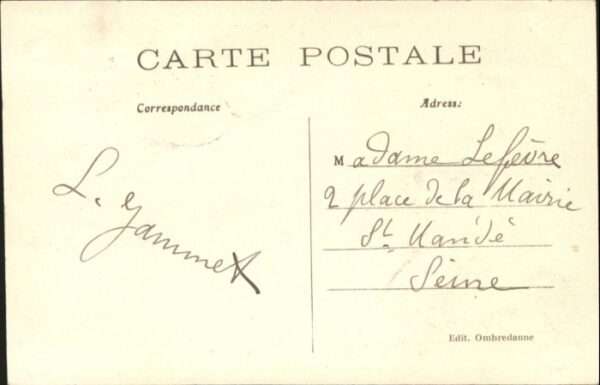 CARTE POSTALE
Correspondance
Adress:
L. Jammet
Madame Lefèvre
2 place de la Mairie
St Mandé
Seine
Edit. Ombredanne